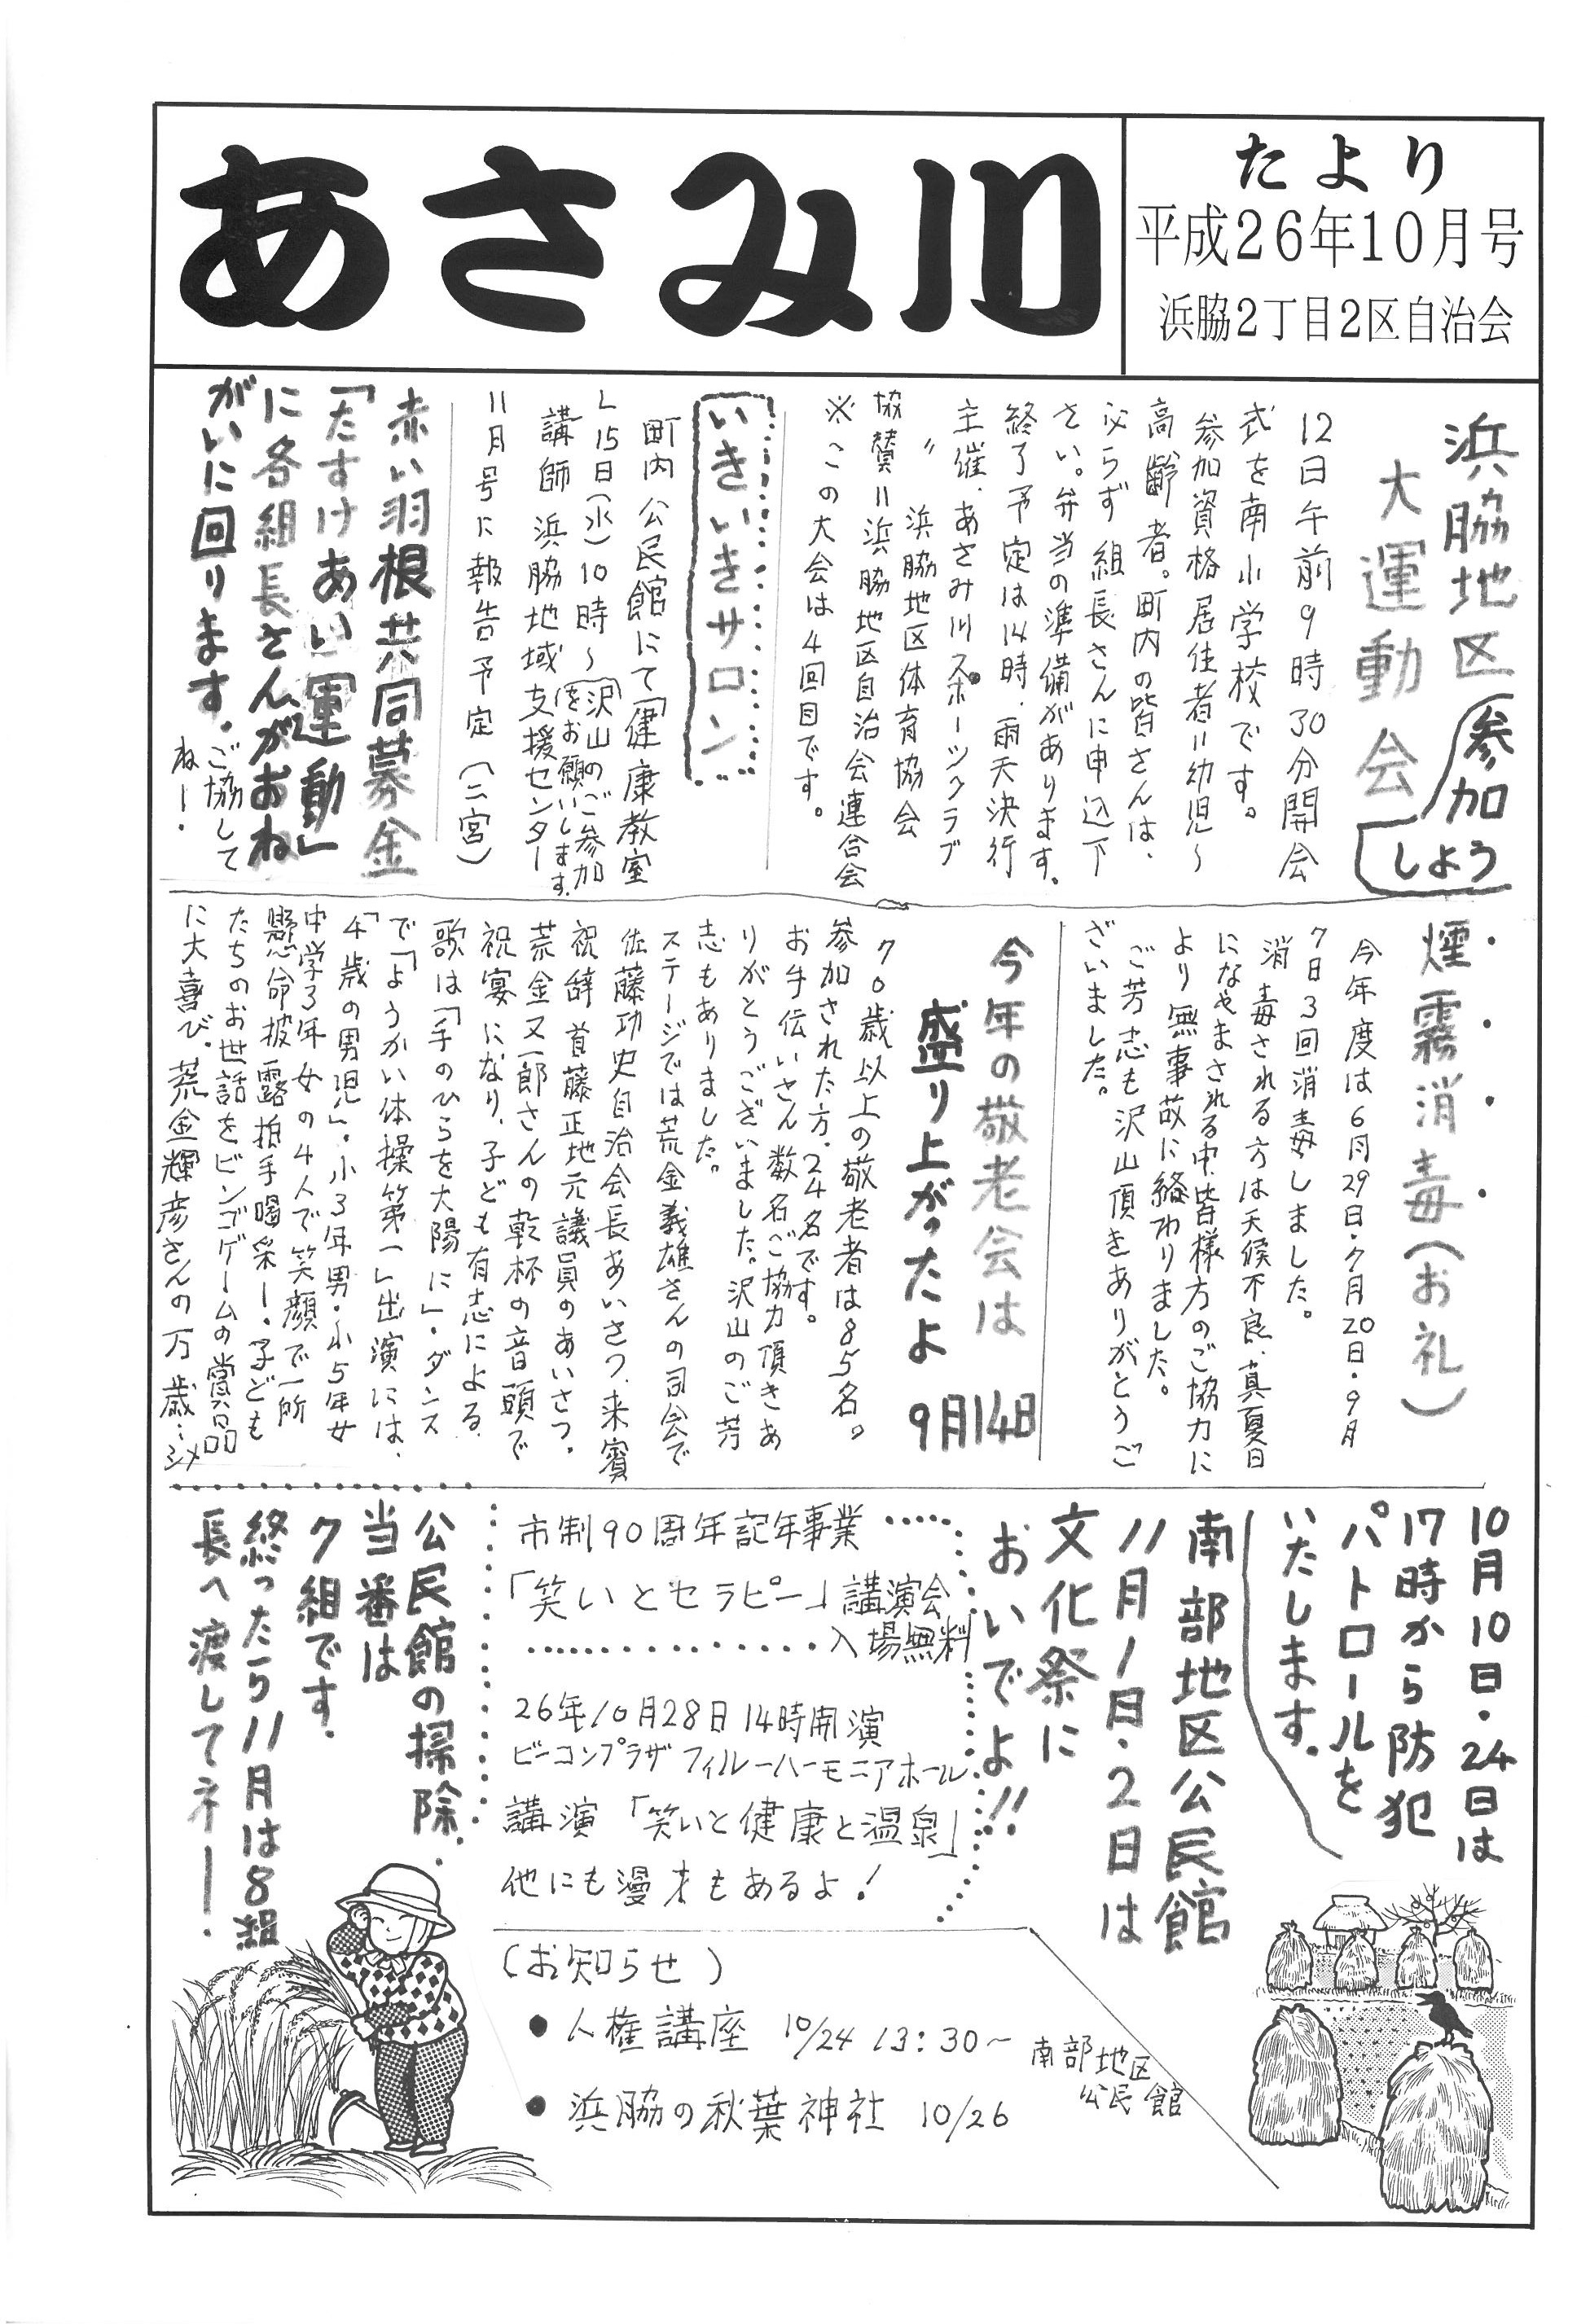 あさみ川
たより
平成26年10月号
浜脇2丁目2区自治会
浜脇地区
大運動会
参加
しよう
12日午前9時30分開会
式を南小学校です。
参加資格居住者=幼児〜
高齢者。町内の皆さんは、
必らず組長さんに申込下
さい。弁当の準備があります。
終了予定は14時、雨天決行
主催、あさみ川スポーツクラブ
〃 浜脇地区体育協会
協賛=浜脇地区自治会連合会
※この大会は4回目です。
いきいきサロン
町内公民館にて「健康教室
」15日(水)10時〜
沢山のご参加
をお願いします。
講師 浜脇地域支援センター
11月号に報告予定(二宮)
赤い羽根共同募金
「たすけあい運動」
に各組長さんがおね
がいに回ります。
ご協して
ねー.
煙霧消毒(お礼)
今年度は6月29日・7月20日・9月
7日3回消毒しました。
消毒される方は天候不良、真夏日
になやまされる中、皆様方のご協力に
より無事故に終わりました。
ご芳志も沢山頂きありがとうご
ざいました。
今年の敬老会は
盛り上がったよ
9月14日
70歳以上の敬老者は85名。
参加された方、24名です。
お手伝いさん数名ご協力頂きあ
りがとうございました。沢山のご芳
志もありました。
ステージでは荒金義雄さんの司会で
佐藤功史自治会長あいさつ、来賓
祝辞 首藤正地元議員のあいさつ。
荒金又一郎さんの乾杯の音頭で
祝宴になり、子ども有志による
歌は「手のひらを太陽に」・ダンス
で「ようかい体操第一」出演には、
「4歳の男児」・小3年男・小5年女
中学3年女の4人で笑顔で一所
懸命披露拍手喝采ー・子ども
たちのお世話をビンゴゲームの賞品
に大喜び、荒金輝彦さんの万歳…〆
10月10日・24日は
17時から防犯
パトロールを
いたします。
南部地区公民館
11月1日・2日は
文化祭に
おいでよ!!
市制90周年記年事業
「笑いとセラピー」講演会
入場無料
26年10月28日14時開演
ビーコンプラザ フィルーハーモニアホール
講演「笑いと健康と温泉」
他にも漫才もあるよ!
公民館の掃除.
当番は
7組です.
終ったら11月は8組
長へ渡してネー.
(お知らせ)
●人権講座 10/24 13:30〜 南部地区
公民館
●浜脇の秋葉神社 10/26